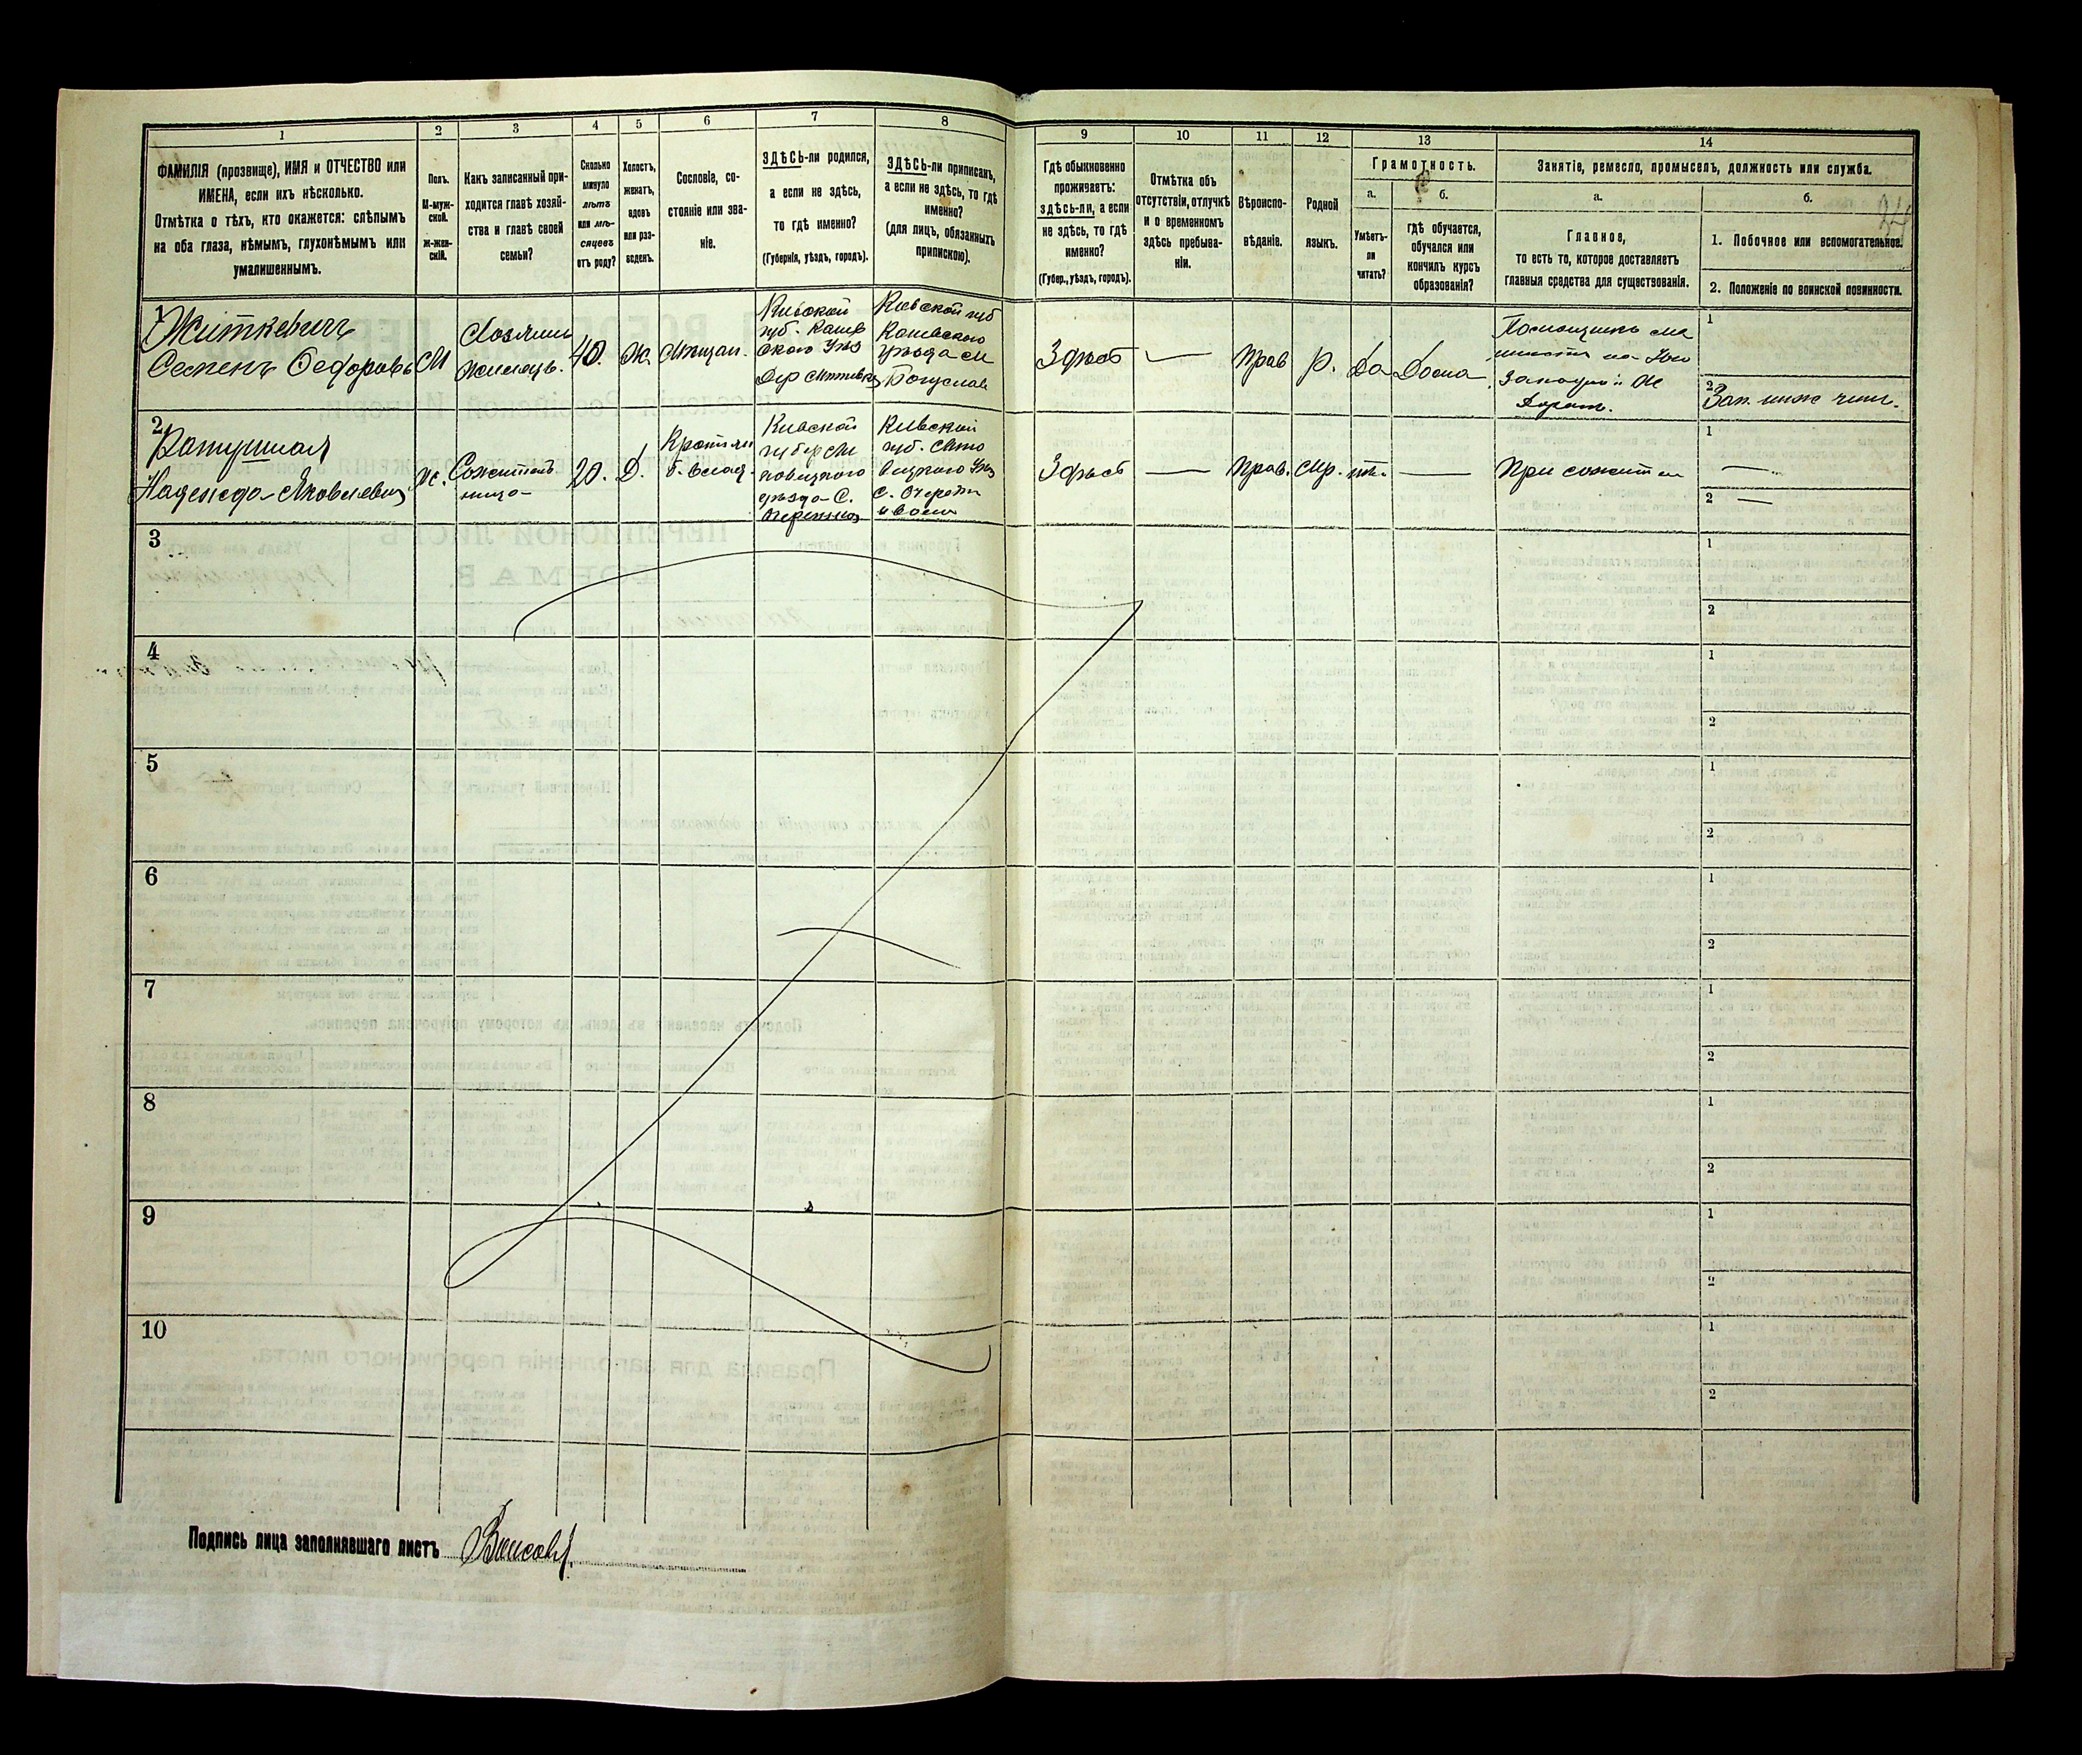 1
2
3
4
5
6
7
8
9
10
11
12
13
14
ФАМИЛІЯ (прозвище), ИМЯ и ОТЧЕСТВО или
ИМЕНА, если ихъ нѣсколько.
Отмѣтка о тѣхъ, кто окажется: слѣпымъ
на оба глаза, нѣмымъ, глухонѣмымъ или
умалишеннымъ.
Полъ.
М-муж-
ской.
Ж-жен-
скій.
Какъ записанный при-
ходится главѣ хозяй-
ства и главѣ своей
семьи?
Сколько
минуло
лѣтъ
или мѣ-
сяцевъ
отъ роду?
Холостъ,
женатъ,
вдовъ
или раз-
веденъ.
Сословіе, со-
стояніе или зва-
ніе.
ЗДѢСЬ-ли родился,
а если не здѣсь,
то гдѣ именно?
(Губернія, уѣздъ, городъ).
ЗДѢСЬ-ли приписанъ,
а если не здѣсь, то гдѣ
именно?
(для лицъ, обязанныхъ
припискою).
Гдѣ обыкновенно
проживаетъ:
здѣсь-ли, а если
не здѣсь, то гдѣ
именно?
(Губер., уѣздъ, городъ).
Отмѣтка объ
отсутствіи, отлучкѣ
и о временномъ
здѣсь пребыва-
ніи.
Вѣроиспо-
вѣданіе.
Родной
языкъ.
Грамотность.
а.
б.
Умѣетъ-
ли
читать?
гдѣ обучается,
обучался или
кончилъ курсъ
образованія?
Занятіе, ремесло, промыселъ, должность или служба.
а.
б.
Главное,
то есть то, которое доставляетъ
главныя средства для существованія.
1. Побочное или вспомогательное.
2. Положеніе по воинской повинности.
34
1
Житкевичъ
Семенъ Федоровъ
М
Хозяинъ
40.
Ж.
Мѣщан.
Кіевской
губ. Канев
скаго Уѣз
Кіевской губ
Каневскаго
уѣзда м
Богуслав
Здѣсь
—
Прав
Р.
Да
Дома
Помощникъ ма
1
2
Зап. ниж. чин.
2
Надежда Яковлевна
Ж.
Сожитель
ница
20.
Д.
Кіевской
уѣзда С.
Кіевской
губ.
Здѣсь
—
Прав.
Мр.
нѣт
—
При сожител
1
—
2
—
3
1
2
4
1
2
5
1
2
6
1
2
7
1
2
8
1
2
9
1
2
10
1
2
Подпись лица заполнявшаго листъ